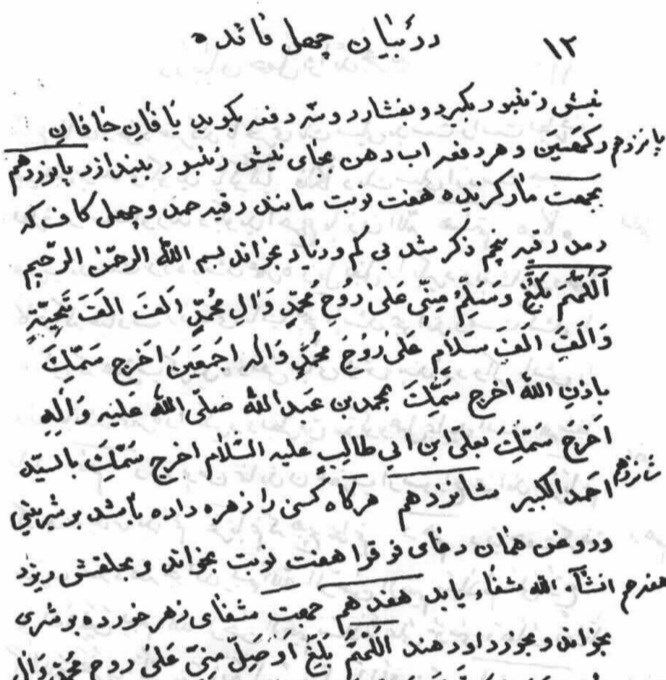 ۱۲ در بیان چهل فائده
نیش زنبور بگیرد و بفشارد و سه دفعه بگوید یا قان خاقان
پانزدهم
و هر دفعه اب دهن بجای نیش زنبور بیندازد پانزدهم
بجهت مار گزیده هفت نوبت مانند رقیه و چهل کاف که
در رقیه پنجم ذکر شد بی کم و زیاد بخواند بسم الله الرحمن الرحیم
اَللّهُمَّ بَلِّغْ وَسَلِّمْ مِنّی عَلی رُوحِ مُحَمَّدٍ وَالِ مُحَمَّدٍ اَلفَ اَلفَ تَحِیَّةٍ
وَاَلفَ اَلفَ سَلامٍ عَلی رُوحِ مُحَمَّدٍ وَالِهِ اَجمَعینَ اَخرِج سَمَّکَ
بِاذنِ الله اخرج سَمَّکَ بمحمد بن عبدالله صَلّی الله عَلیه وَالِهِ
اَخرِج سَمَّکَ بعلیّ ابن ابی طالبٍ علیه السّلام اخرج سَمَّکَ بالسیّد
شانزدهم
احمد الکبیر شانزدهم هرگاه کسی را زهر داده باشند بر شیرینی
و دوغ همان دعای فوق را هفت نوبت بخواند و بحلقش ریزد
هفدهم
انشآء الله شفاء یابد هفدهم جهت شفای زهر خورده بر شری
بخواند و بخورد او دهند اَللّهُمَّ بَلِّغ اَوصِل مِنّی عَلی روح مُحَمَّدٍ وَال